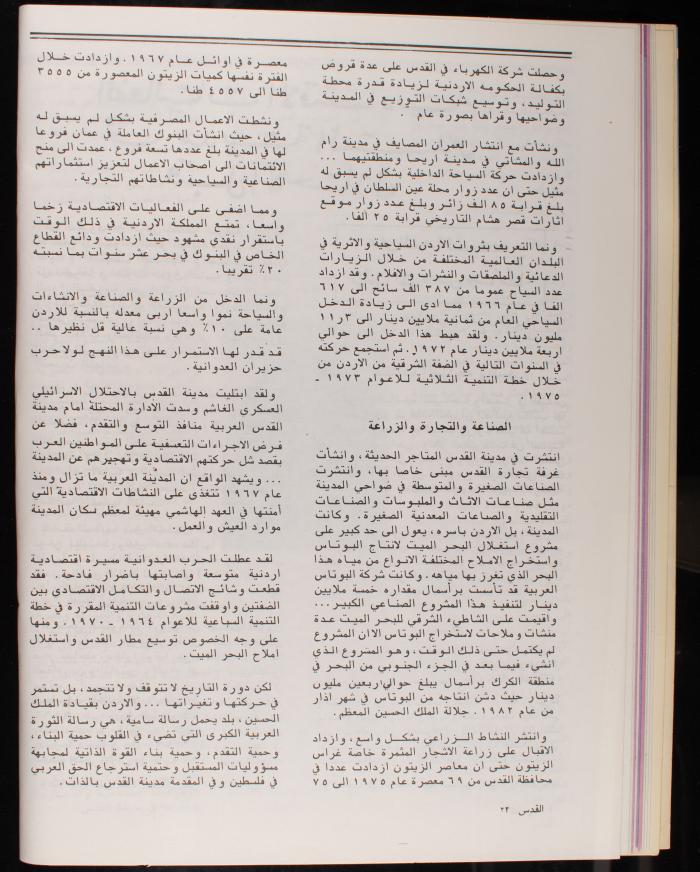 وحصلت شركة الكهرباء في القدس على عدة قروض
بكفالة الحكومه الاردنية لزيادة قدرة محطة
التوليد، وتوسيع شبكات التوزيع في المدينة
وضواحيها وقراها بصورة عام .
ونشأت مع انتشار العمران المصايف في مدينة رام
الله والمشاتي في مدينة اريحا ومنطقتيهما ...
وازدادت حركة السياحة الداخلية بشكل لم يسبق له
مثيل حتى ان عدد زوار محلة عين السلطان في اريحا
بلغ قرابة ٨٥ الف زائر وبلغ عدد زوار موقع
اثارات قصر هشام التاريخي قرابة ٢٥ الفا.
ونما التعريف بثروات الاردن السياحية والاثرية في
البلدان العالمية المختلفة من خلال الزيارات
الدعائية والملصقات والنشرات والافلام . وقد ازداد
عدد السياح عموما من ٣٨٧ الف سائح الى ٦١٧
الفا في عام ١٩٦٦ مما ادى الى زيادة الدخل
السياحي العام من ثمانية ملايين دينار الى ١١٫٣
مليون دينار. ولقد هبط هذا الدخل الى حوالي
اربعة ملايين دينار عام ١٩٧٢ . ثم استجمع حركته
في السنوات التالية في الضفة الشرقية من الاردن من
خلال خطة التنمية الثلاثية للاعوام ١٩٧٣ -
١٩٧٥ .
الصناعة والتجارة والزراعة
انتشرت في مدينة القدس المتاجر الحديثة، وانشأت
غرفة تجارة القدس مبنى خاصا بها، وانتشرت
الصناعات الصغيرة والمتوسطة في ضواحي المدينة
مثل صناعات الاثاث والملبوسات والصناعات
التقليدية والصناعات المعدنية الصغيرة. وكانت
المدينة، بل الاردن باسره، يعول الى حد كبير على
مشروع استغلال البحر الميت لانتاج البوتاس
واستخراج الاملاح المختلفة الانواع من مياه هذا
البحر الذي تعرز بها مياهه . وكانت شركة البوتاس
العربية قد تأسست برأسمال مقداره خمسة ملايين
دينار لتنفيذ هذا المشروع الصناعي الكبير...
واقيمت على الشاطىء الشرقي للبحر الميت عدة
منشات وملاحات لاستخراج البوتاس الا ان المشروع
لم يكتمل حتى ذلك الوقت، وهو المشروع الذي
انشيء فيما بعد في الجزء الجنوبي من البحر في
منطقة الكرك برأسمال يبلغ حوالي اربعين مليون
دينار حيث دشن انتاجه من البوتاس في شهر اذار
من عام ١٩٨٢ . جلالة الملك الحسين المعظم .
وانتشر النشاط الزراعي بشكل واسع، وازداد
الاقبال على زراعة الاشجار المثمرة خاصة غراس
الزيتون حتى ان معاصر الزيتون ازدادت عددا في
محافظة القدس من ٦٩ معصرة عام ١٩٧٥ الى ٧٥
معصرة في اوائل عام ١٩٦٧ . وازدادت خلال
الفترة نفسها كميات الزيتون المعصورة من ٣٥٥٥
طنا الى ٤٥٥٧ طنا.
ونشطت الاعمال المصرفية بشكل لم يسبق له
مثيل، حيث انشأت البنوك العاملة في عمان فروعا
لها في المدينة بلغ عددها تسعة فروع، عمدت الى منح
الائتمانات الى اصحاب الاعمال لتعزيز استثماراتهم
الصناعية والسياحية ونشاطاتهم التجارية.
ومما اضفى على الفعاليات الاقتصادية زخما
واسعا، تمتع المملكة الاردنية في ذلك الوقت
باستقرار نقدي مشهود حيث ازدادت ودائع القطاع
الخاص في البنوك في بحر عشر سنوات بما نسبته
٢٠٪ تقريبا.
ونما الدخل من الزراعة والصناعة والانشاءات
والسياحة نموا واسعا اربى معدله بالنسبة للاردن
عامة على ١٠٪ وهي نسبة عالية قل نظيرها ..
قد قدر لها الاستمرار على هذا النهج لولا حرب
حزيران العدوانية.
ولقد ابتليت مدينة القدس بالاحتلال الاسرائيلي
العسكري الغاشم وسدت الادارة المحتلة امام مدينة
القدس العربية منافذ التوسع والتقدم، فضلا عن
فرض الاجراءات التعسفية على المواطنين العرب
بقصد شل حركتهم الاقتصادية وتهجيرهم عن المدينة
... ويشهد الواقع ان المدينة العربية ما تزال ومنذ
عام ١٩٦٧ تتغذى على النشاطات الاقتصادية التي
أمنتها في العهد الهاشمي مهيئة لمعظم سكان المدينة
موارد العيش والعمل.
لقد عطلت الحرب العدوانية مسيرة اقتصادية
اردنية متوسعة واصابتها باضرار فادحة. فقد
قطعت وشائج الاتصال والتكامل الاقتصادي بين
الضفتين واوقفت مشروعات التنمية المقررة في خطة
التنمية السباعية للاعوام ١٩٦٤ - ١٩٧٠ . ومنها
على وجه الخصوص توسيع مطار القدس واستغلال
املاح البحر الميت.
لكن دورة التاريخ لا تتوقف ولا تتجمد، بل تستمر
في حركتها وتغيراتها ... والاردن بقيادة الملك
الحسين، بلد يحمل رسالة سامية، هي رسالة الثورة
العربية الكبرى التي تضيء في القلوب حمية البناء،
وحمية التقدم، وحمية بناء القوة الذاتية لمجابهة
مسؤوليات المستقبل وحتمية استرجاع الحق العربي
في فلسطين وفي المقدمة مدينة القدس بالذات.
القدس ٢٣